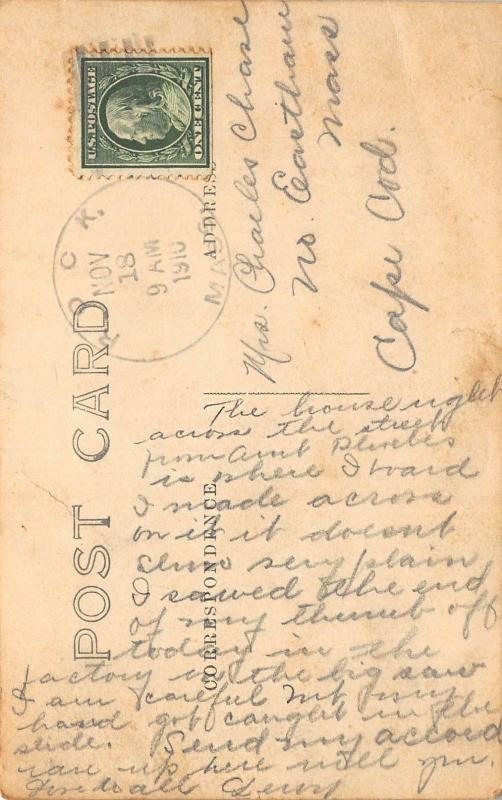 U.S.POSTAGE
ONE CENT
ROCK,
NOV
18
9 AM
1910
MASS.
POST CARD
ADDRESS
Mrs. Charles Chase
No. Eastham
Mass
Cape Cod.
CORRESPONDENCE
The house right
across the street
from Aunt Phoebes
is where I board
I made across
on it it doesnt
show very plain
I sawed the end
of my thumb off
today in the
factory on the big saw
I am careful but my
hand got caught in the
slide. Send my accord
ian up here will you.
Love to all